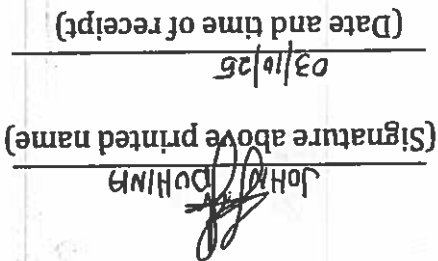 JOHN
(Signature above printed name)
03/10/25
(Date and time of receipt)